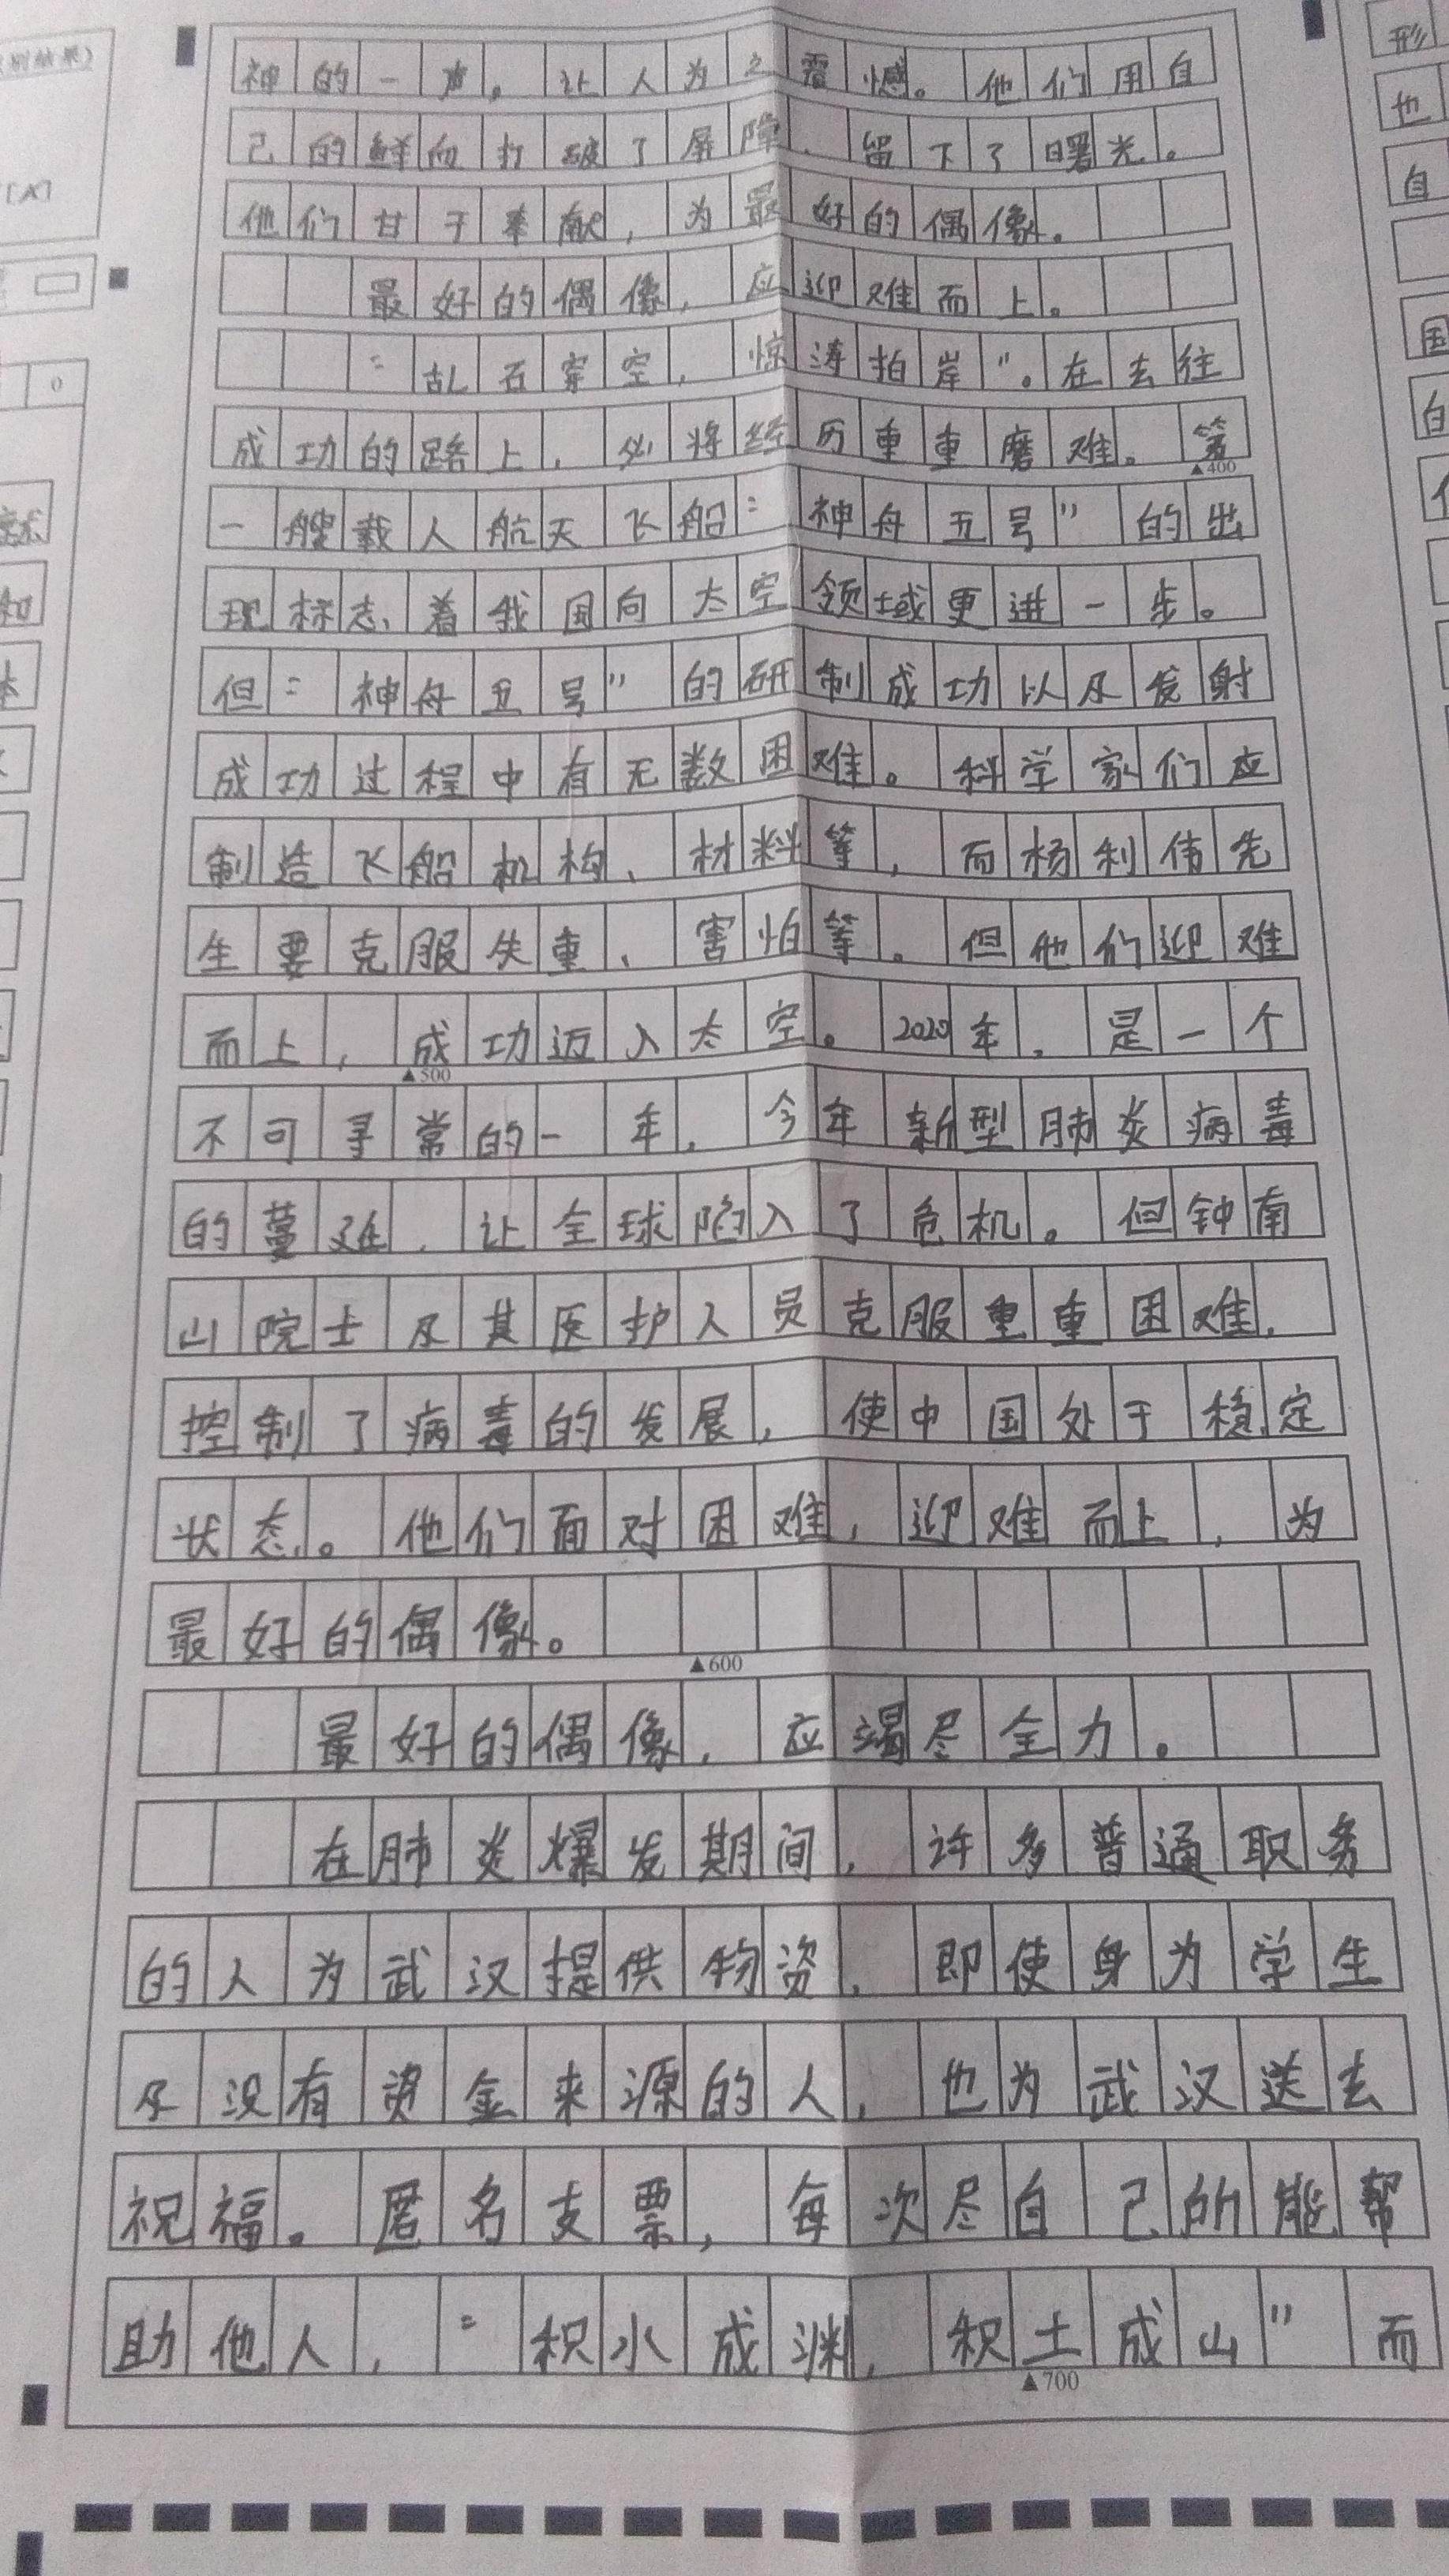 神的一声。让人为之震憾。他们用自
己的鲜血打破了屏障，留下了曙光。
他们甘于奉献，为最好的偶像。
最好的偶像，应迎难而上。
“乱石穿空，惊涛拍岸”。在去往
成功的路上，必将经历重重磨难。第
▲400
一艘载人航天飞船“神舟五号”的出
现标志着我国向太空领域更进一步。
但“神舟五号”的研制成功以及发射
成功过程中有无数困难。科学家们应
制造飞船机构、材料等，而杨利伟先
生要克服失重、害怕等。但他们迎难
而上，成功迈入太空。2020年，是一个
▲500
不可寻常的一年，今年新型肺炎病毒
的蔓延，让全球陷入了危机。但钟南
山院士及其医护人员克服重重困难，
控制了病毒的发展，使中国处于稳定
状态。他们面对困难，迎难而上，为
最好的偶像。
▲600
最好的偶像，应竭尽全力。
在肺炎爆发期间，许多普通职务
的人为武汉提供物资，即使身为学生
及没有资金来源的人，也为武汉送去
祝福。匿名支票，每次尽自己所能帮
助他人，“积水成渊，积土成山”而
▲700